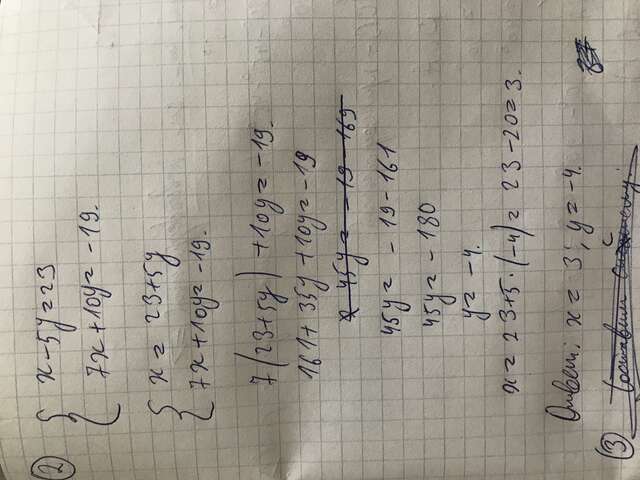 ② { x-5y=23
7x+10y=-19.
{ x=23+5y
7x+10y=-19.
7(23+5y)+10y=-19.
161+35y+10y=-19
45y=-19-169
45y=-19-161
45y=-180
y=-4.
x=23+5·(-4)=23-20=3.
Ответ: x=3; y=-4.
③ Составим систему